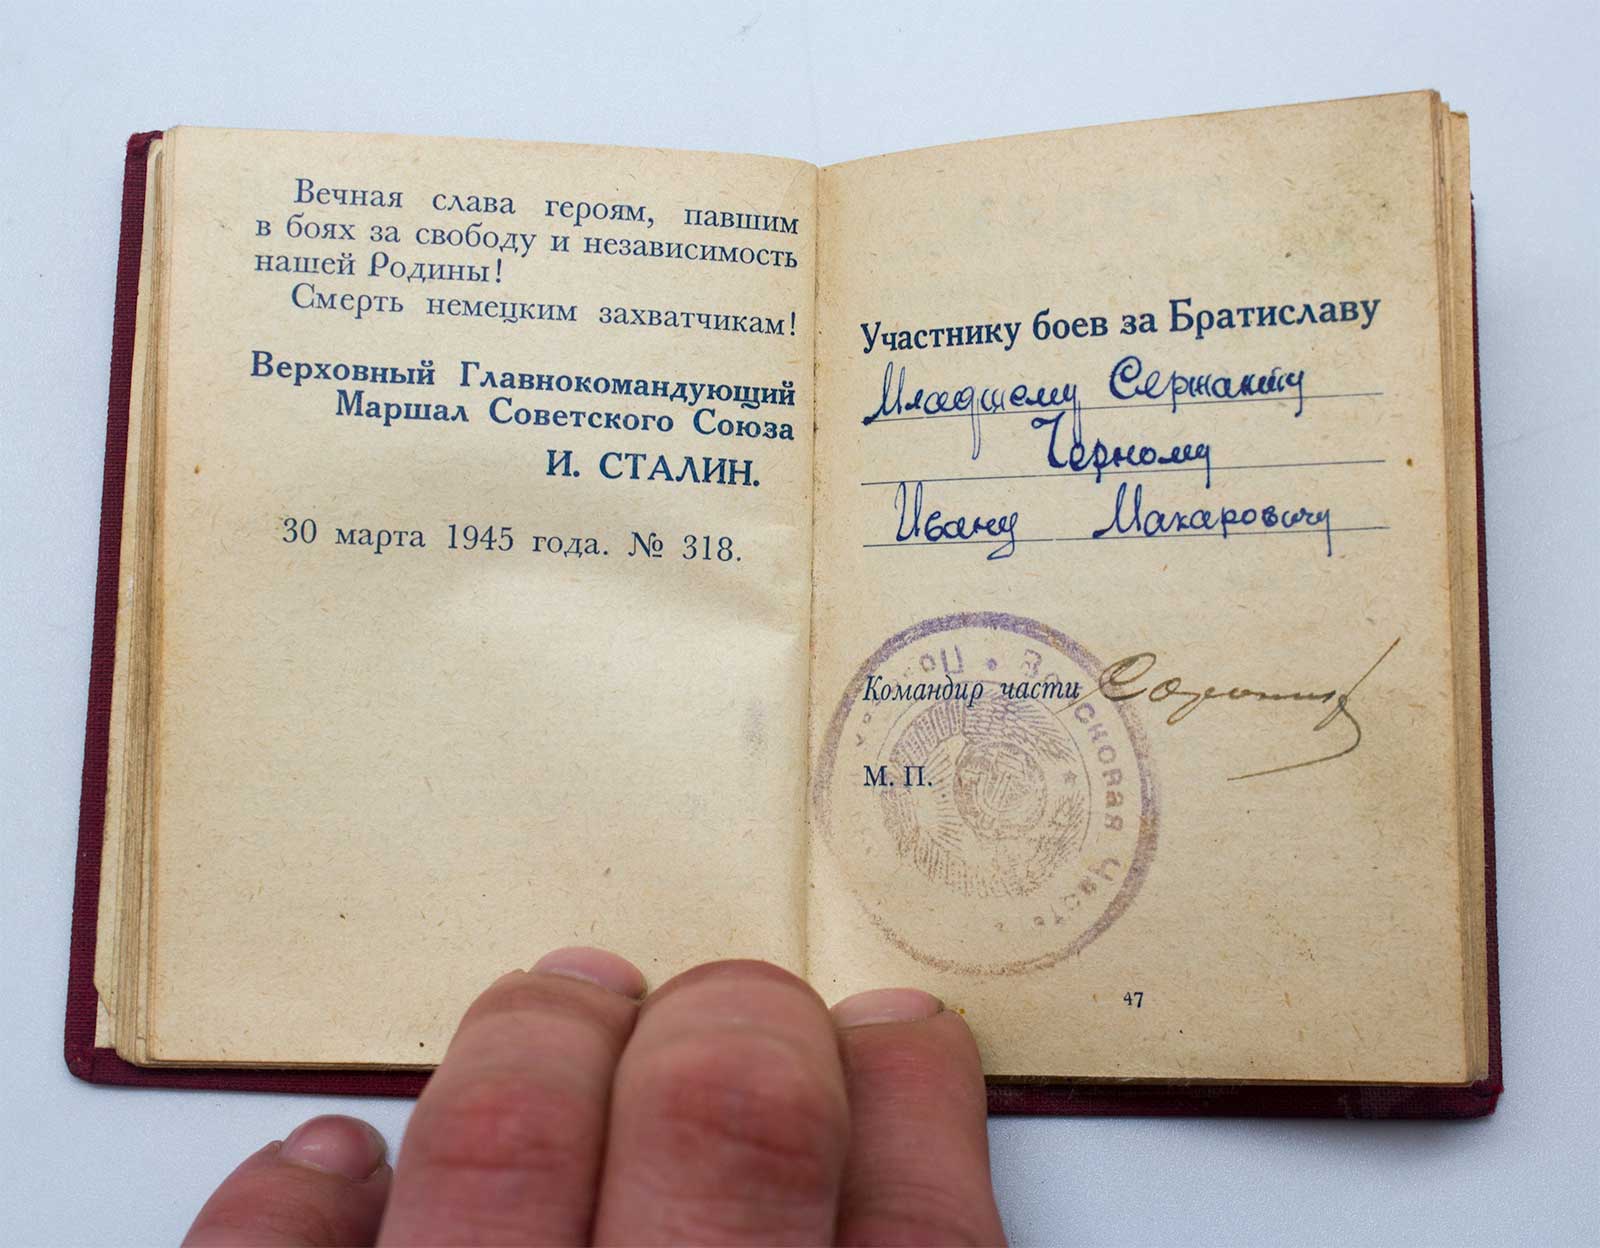 Вечная слава героям, павшим
в боях за свободу и независимость
нашей Родины!
Смерть немецким захватчикам!
Верховный Главнокомандующий
Маршал Советского Союза
И. СТАЛИН.
30 марта 1945 года. № 318.
Участнику боев за Братиславу
Младшему Сержанту
Черному
Ивану Макаровичу
Командир части
М. П.
Войсковая Часть
47